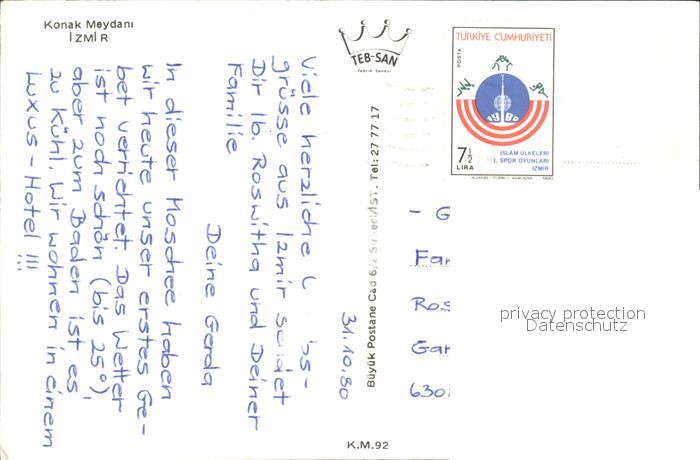 Konak Meydanı
İZMİR
TEB-SAN
TÜRKİYE CUMHURİYETİ
POSTA
1980
7½
LİRA
İSLÂM ÜLKELERİ
1. SPOR OYUNLARI
İZMİR
AJANS-TÜRK - ANKARA 1980
31.10.80
Viele herzliche
grüsse aus Izmir sendet
Dir lb. Roswitha und Deiner
Familie
Deine Gerda
In dieser Moschee haben
wir heute unser erstes Ge-
bet verrichtet. Das Wetter
ist noch schön (bis 25°),
aber zum Baden ist es
zu kühl. Wir wohnen in einem
Luxus-Hotel !!!
Büyük Postane Cad 6/2 /İST. Tel: 27 77 17
- G
Far
Ros
Gar
630
privacy protection
Datenschutz
K.M.92